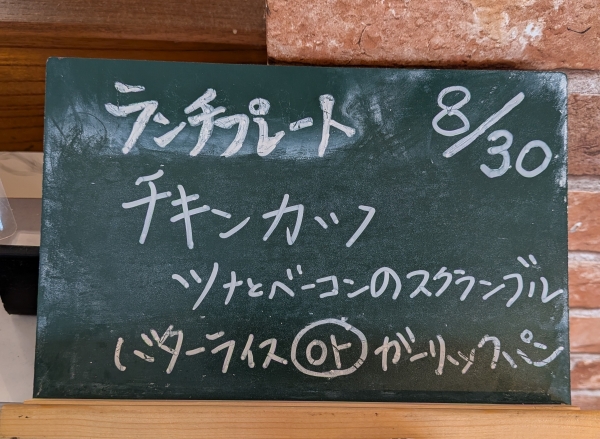 ランチプレート 8/30
チキンカツ
ツナとベーコンのスクランブル
バターライス or ガーリックパン